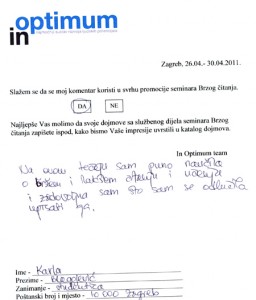 optimum
in
Zagreb, 26.04.- 30.04.2011.
Slažem se da se moj komentar koristi u svrhu promocije seminara Brzog čitanja.
DA NE
Najljepše Vas molimo da svoje dojmove sa službenog dijela seminara Brzog
čitanja zapišete ispod, kako bismo Vaše impresije uvrstili u katalog dojmova.
In Optimum team
Na ovom tečaju sam puno naučila
o bržem i lakšem čitanju i učenju
i zadovoljna sam što sam se odlučila
upisati ga.
Ime - Karla
Prezime -
Zanimanje - studentica
Poštanski broj i mjesto - 10 000 Zagreb